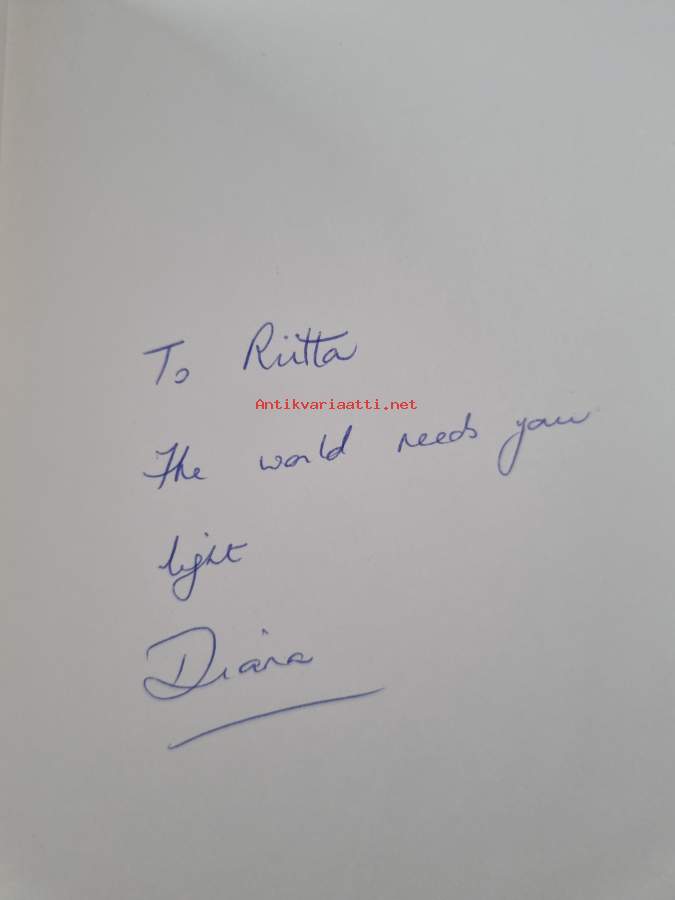 To Riitta
Antikvariaatti.net
The world needs your
light
Diana